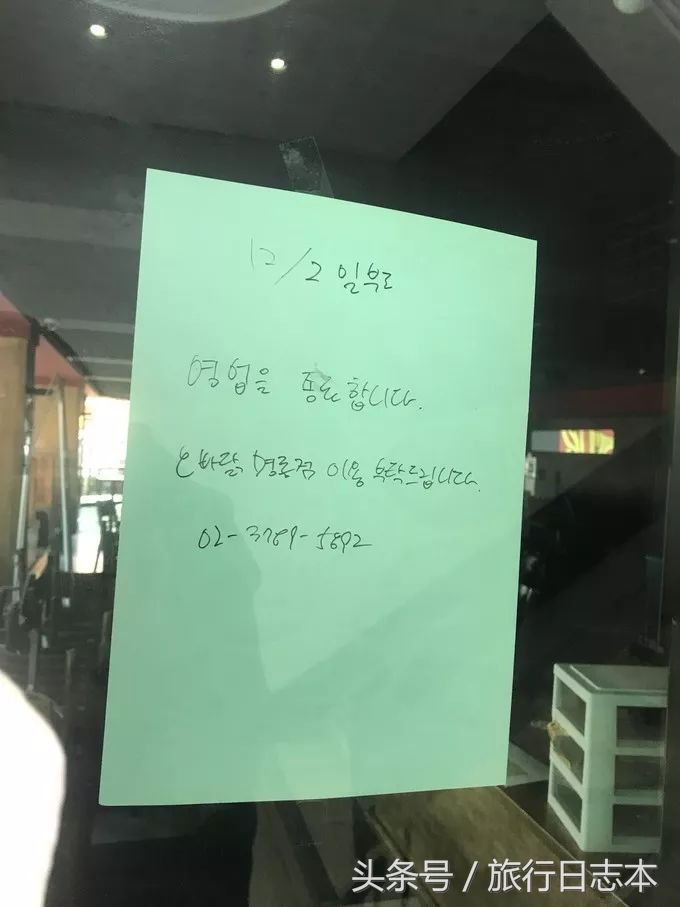 12/2 일부로
영업을 종료합니다.
명륜점 이용 부탁드립니다.
02-3789-5892
头条号 / 旅行日志本